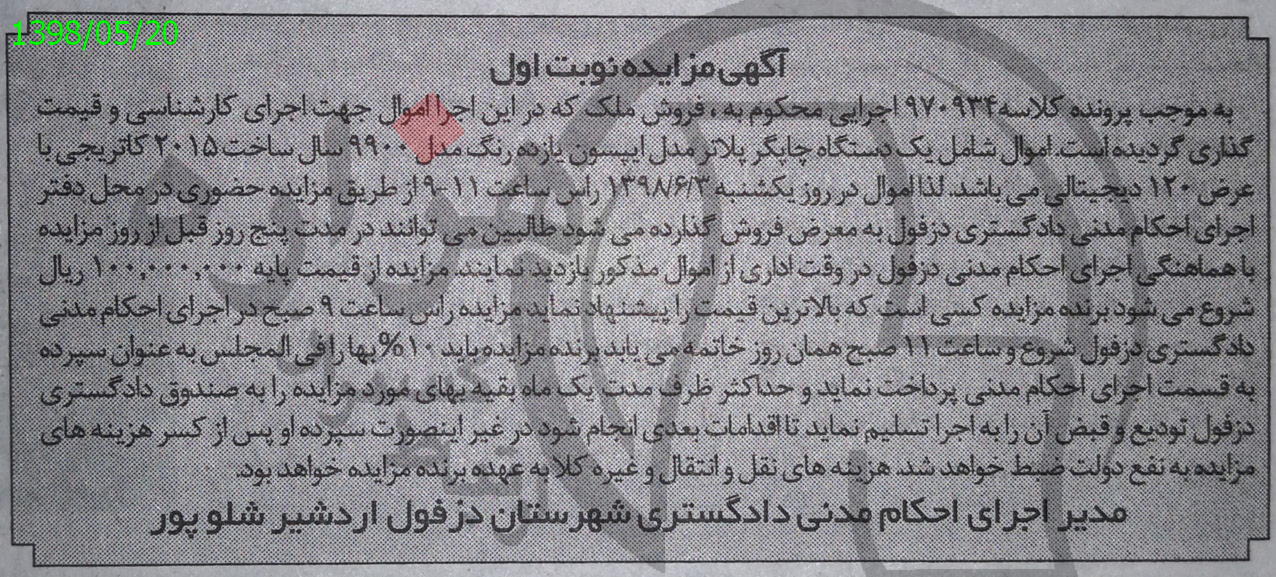 1398/05/20
آگهی مزایده نوبت اول
به موجب پرونده کلاسه ۹۷۰۹۳۴ اجرایی محکوم به ، فروش ملک که در این اجرا اموال جهت اجرای کارشناسی و قیمت
گذاری گردیده است. اموال شامل یک دستگاه چاپگر پلاتر مدل ایپسون یازده رنگ مدل ۹۹۰۰ سال ساخت ۲۰۱۵ کاتریجی با
عرض ۱۲۰ دیجیتالی می باشد. لذا اموال در روز یکشنبه ۱۳۹۸/۶/۳ راس ساعت ۱۱-۹ از طریق مزایده حضوری در محل دفتر
اجرای احکام مدنی دادگستری دزفول به معرض فروش گذارده می شود طالبین می توانند در مدت پنج روز قبل از روز مزایده
با هماهنگی اجرای احکام مدنی دزفول در وقت اداری از اموال مذکور بازدید نمایند. مزایده از قیمت پایه ۱۰۰,۰۰۰,۰۰۰ ریال
شروع می شود برنده مزایده کسی است که بالاترین قیمت را پیشنهاد نماید مزایده راس ساعت ۹ صبح در اجرای احکام مدنی
دادگستری دزفول شروع و ساعت ۱۱ صبح همان روز خاتمه می یابد برنده مزایده باید ۱۰% بها را فی المجلس به عنوان سپرده
به قسمت اجرای احکام مدنی پرداخت نماید و حداکثر ظرف مدت یک ماه بقیه بهای مورد مزایده را به صندوق دادگستری
دزفول تودیع و قبض آن را به اجرا تسلیم نماید تا اقدامات بعدی انجام شود در غیر اینصورت سپرده او پس از کسر هزینه های
مزایده به نفع دولت ضبط خواهد شد. هزینه های نقل و انتقال و غیره کلا به عهده برنده مزایده خواهد بود.
مدیر اجرای احکام مدنی دادگستری شهرستان دزفول اردشیر شلو پور